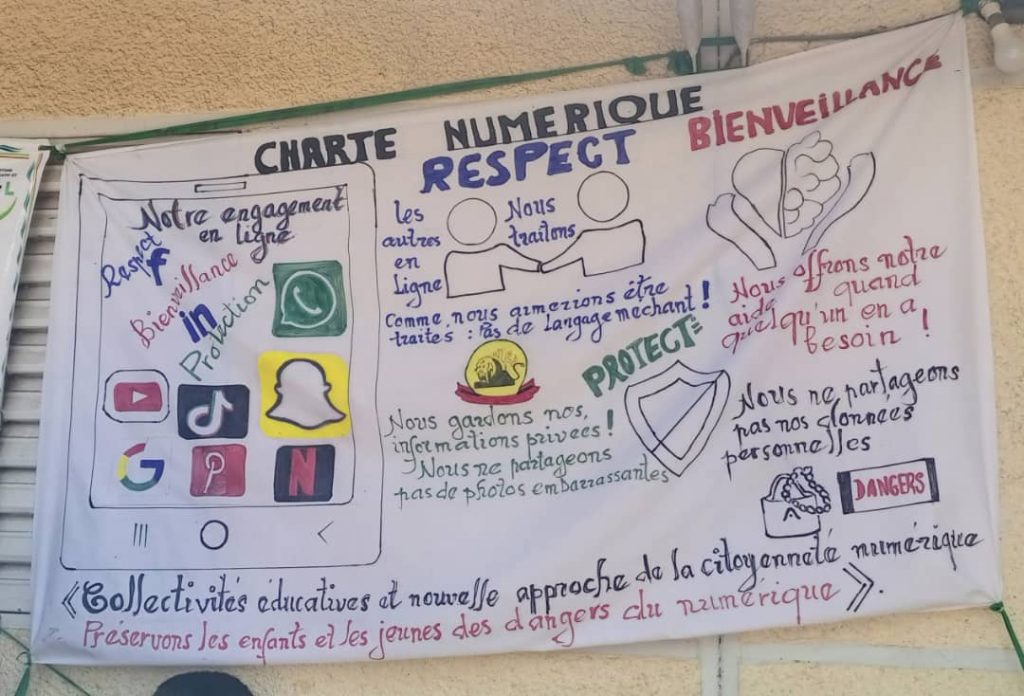 CHARTE NUMERIQUE
RESPECT
BIENVEILLANCE
Notre engagement
en ligne
Respect
f
Bienveillance
in
Protection
G
N
Les
autres
en
Ligne
Nous
traitons
Comme nous aimerions être
traités : Pas de langage mechant !
Nous offrons notre
aide quand
quelqu'un en a
besoin !
PROTECT
Nous gardons nos,
informations privées !
Nous ne partageons
pas de photos embarrassantes
Nous ne partageons
pas nos données
personnelles
DANGERS
«Collectivités éducatives et nouvelle approche de la citoyenneté numérique
Préservons les enfants et les jeunes des dangers du numérique».